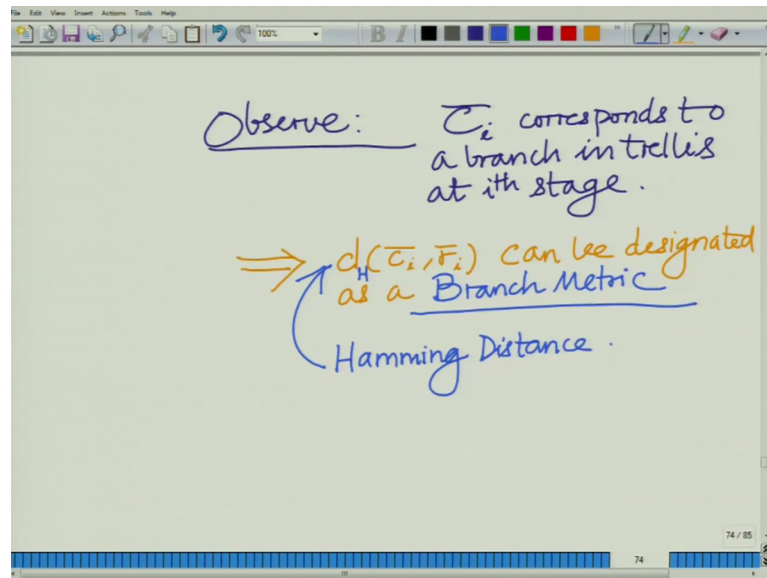 File Edit View Insert Actions Tools Help
100%
B I
Observe: C̅ᵢ corresponds to
a branch in trellis
at ith stage.
⇒ d_H(c̅ᵢ, r̅ᵢ) can be designated
as a Branch Metric
Hamming Distance.
74 / 85
74